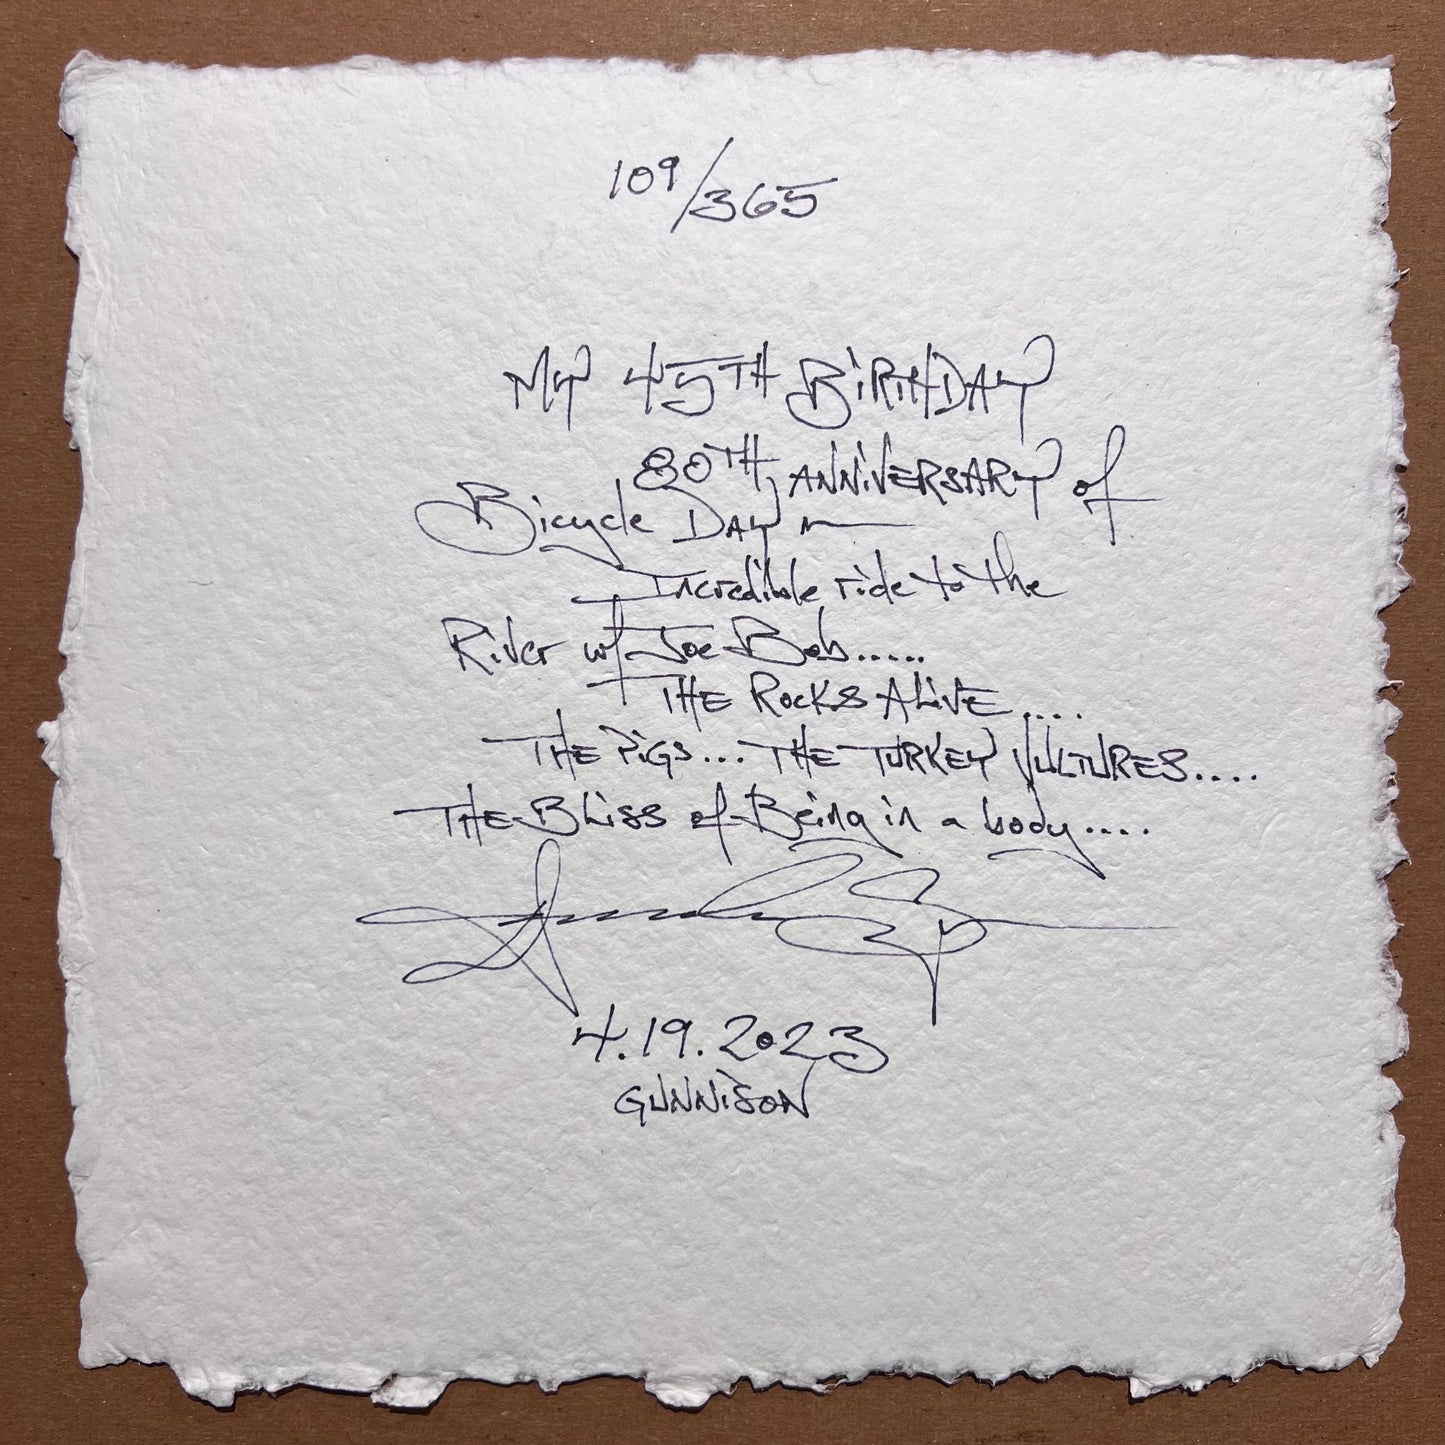 109/365
MY 45TH BIRTHDAY
80TH ANNIVERSARY of
Bicycle DAY ~
Incredible ride to the
River w/ Joe Bob.....
THE ROCKS ALIVE....
THE PIGS... THE TURKEY VULTURES....
THE BLISS of Being in a body....
4.19.2023
GUNNISON